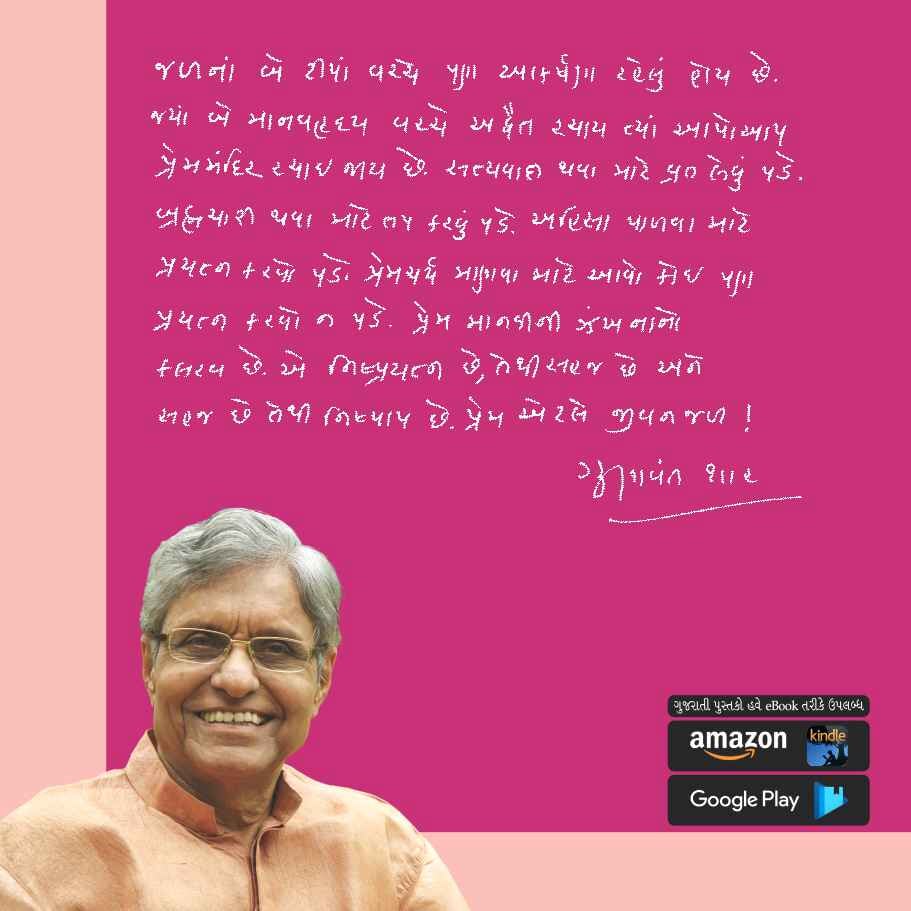 જળનાં બે ટીપાં વચ્ચે પણ આકર્ષણ રહેલું હોય છે.
જ્યાં બે માનવહૃદય વચ્ચે અદ્વૈત રચાય ત્યાં આપોઆપ
પ્રેમમંદિર રચાઈ જાય છે. સત્યવાન થવા માટે વ્રત લેવું પડે.
બ્રહ્મચારી થવા માટે તપ કરવું પડે. અહિંસા પાળવા માટે
પ્રયત્ન કરવો પડે. પ્રેમચર્ય માણવા માટે આવો કોઈ પણ
પ્રયત્ન કરવો ન પડે. પ્રેમ માનવીની ઝંખનાનો
કલરવ છે. એ નિષ્પ્રયત્ન છે, તેથી સહજ છે અને
સહજ છે તેથી નિષ્પાપ છે. પ્રેમ એટલે જીવનજળ !
ગુણવંત શાહ
ગુજરાતી પુસ્તકો હવે eBook તરીકે ઉપલબ્ધ
amazon kindle
Google Play